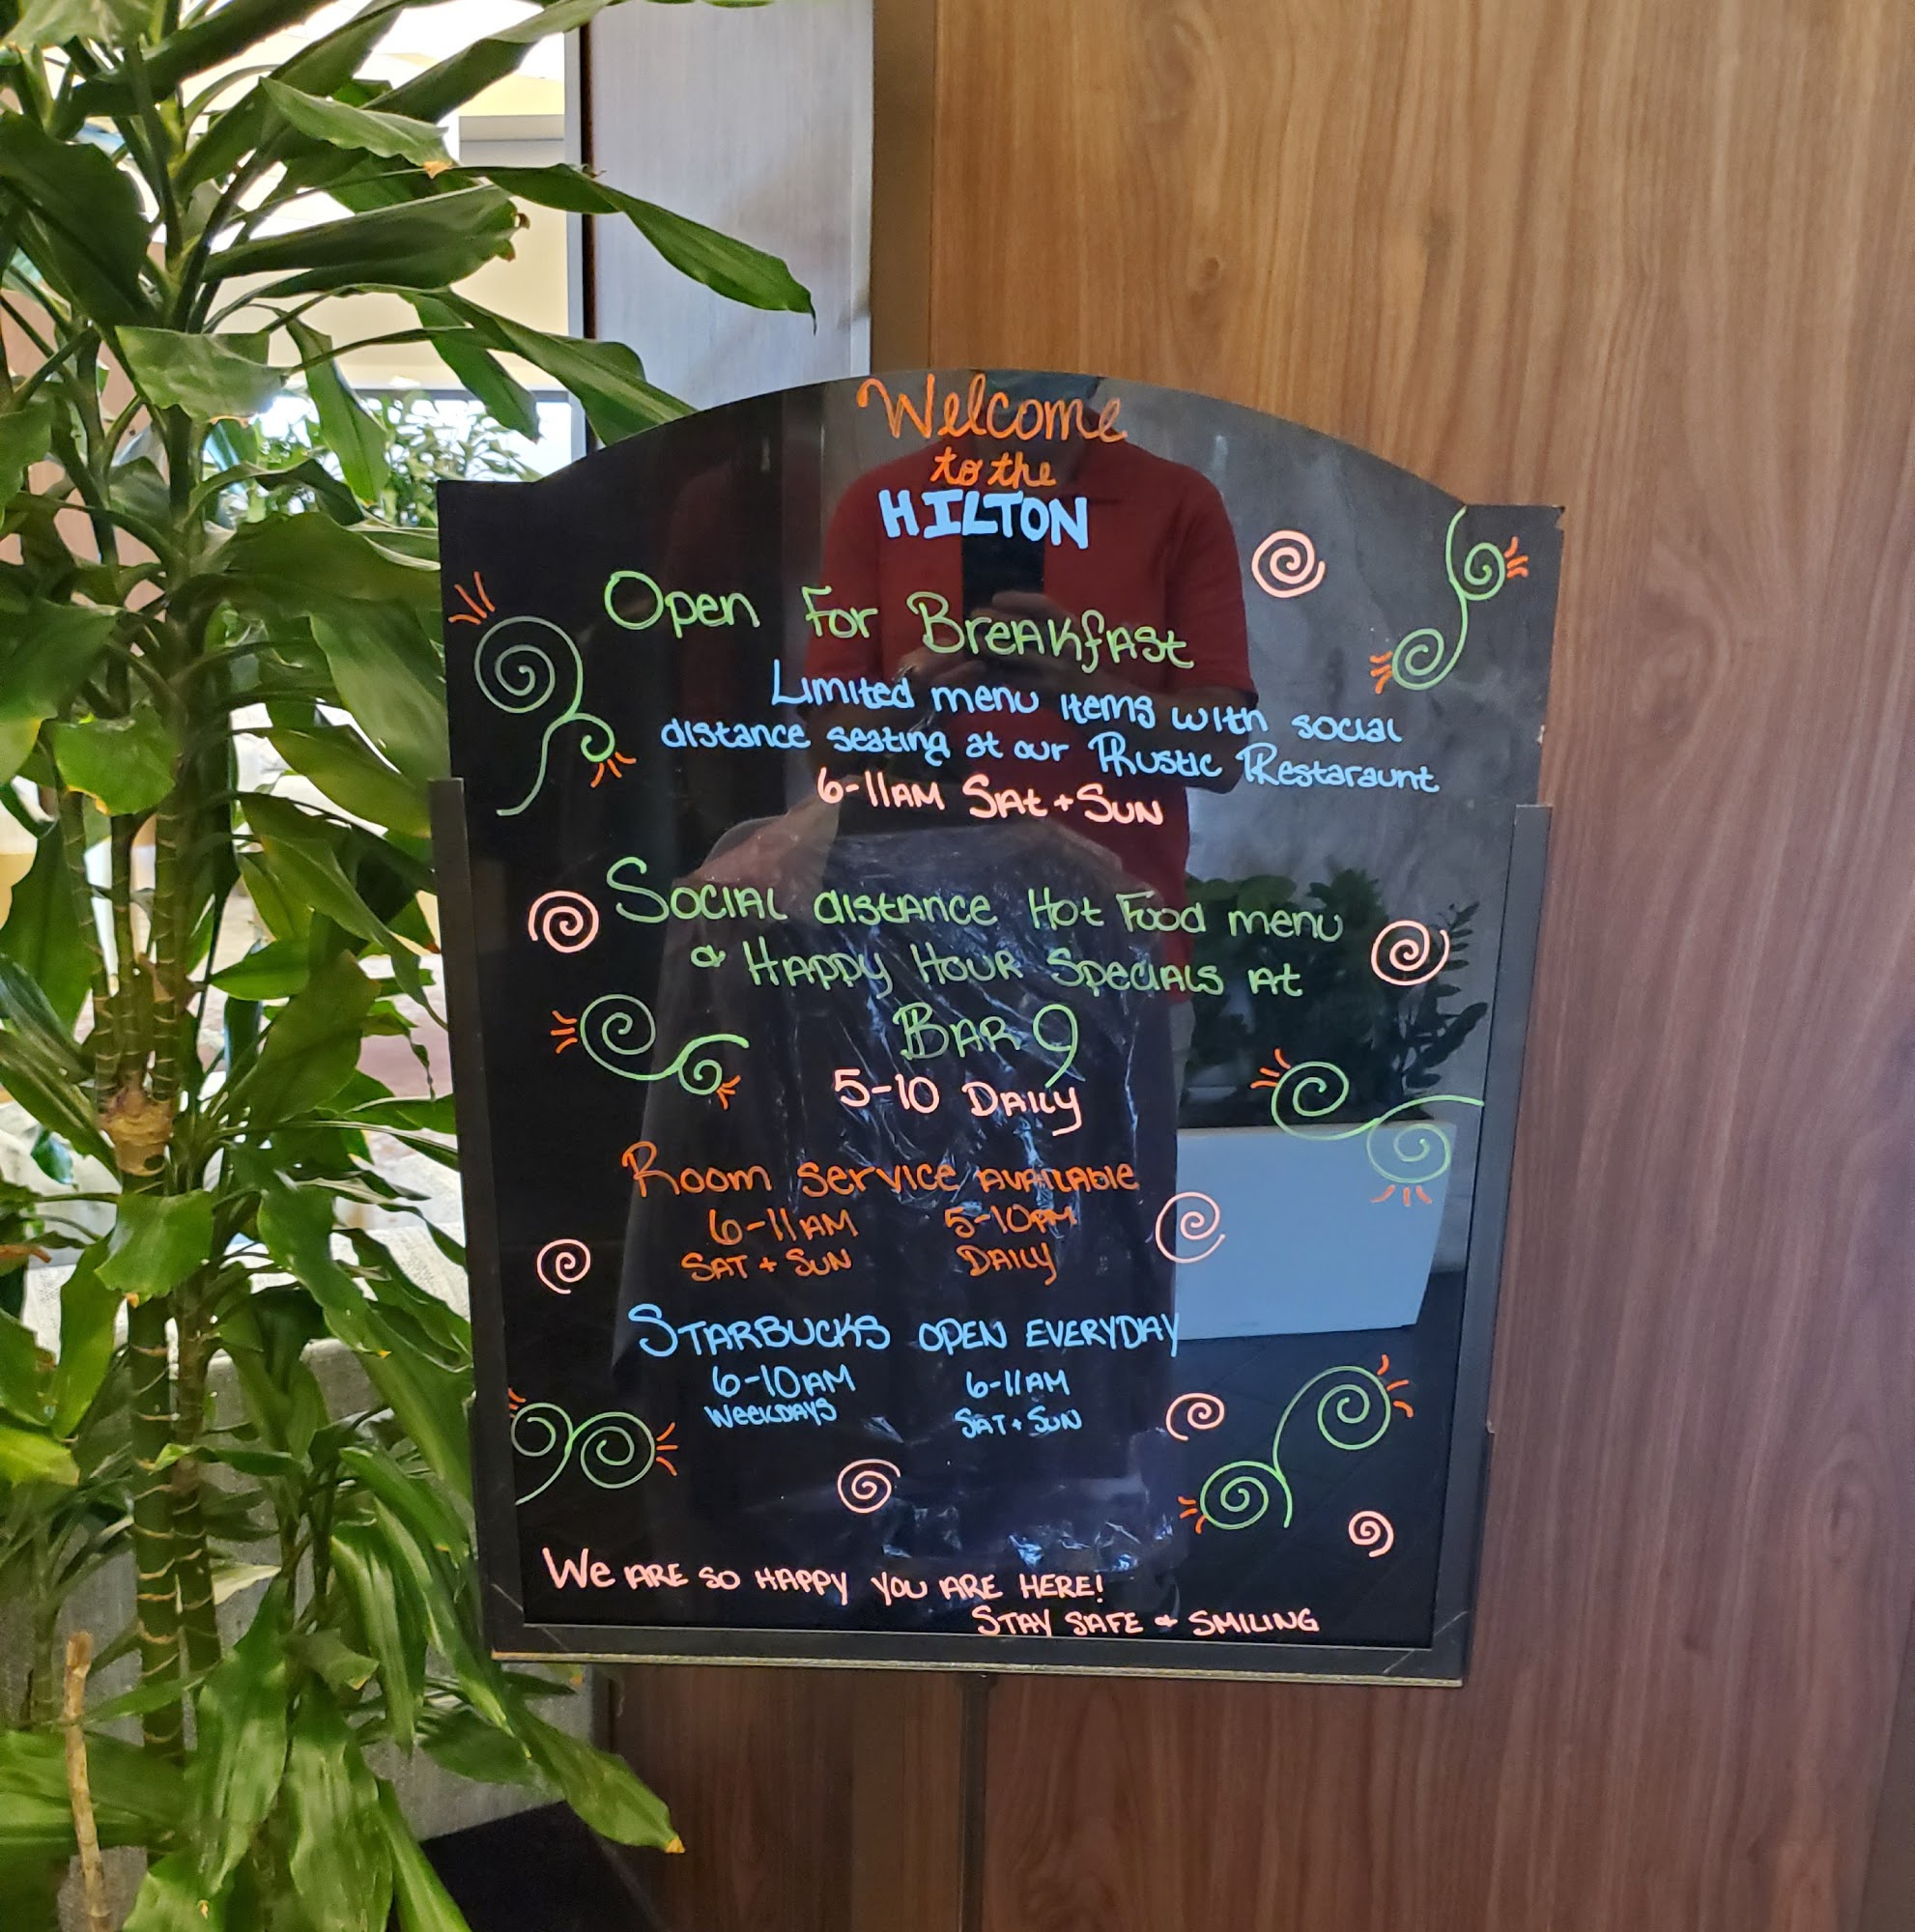 Welcome
to the
HILTON
Open For BreAkfASt
Limited menu items with social
distance seating at our Rustic Restaraunt
6-11AM SAt + SUN
SOCIAL distANCE Hot Food menu
& HAppy HOUR SpeciALS At
BAR 9
5-10 DAILY
Room Service AVAILABLE
6-11AM 5-10PM
SAT + SUN DAILY
STARBUCKS OPEN EVERYDAY
6-10AM 6-11AM
WeekDAYS SAT + SUN
We ARE SO HAPPY YOU ARE HERE!
STAY SAFE & SMILING